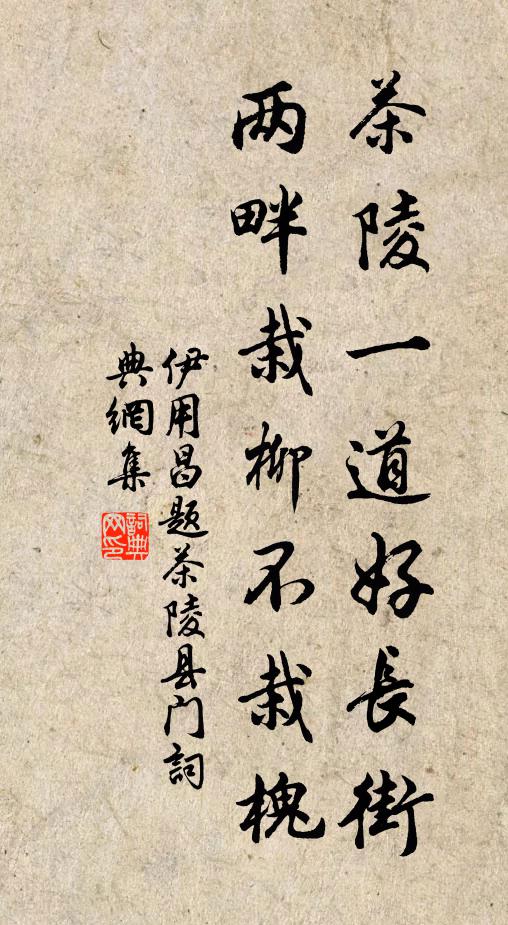 茶陵一道好長街
两畔栽柳不栽槐
伊用昌题茶陵县门詞
典網集
詞典网印